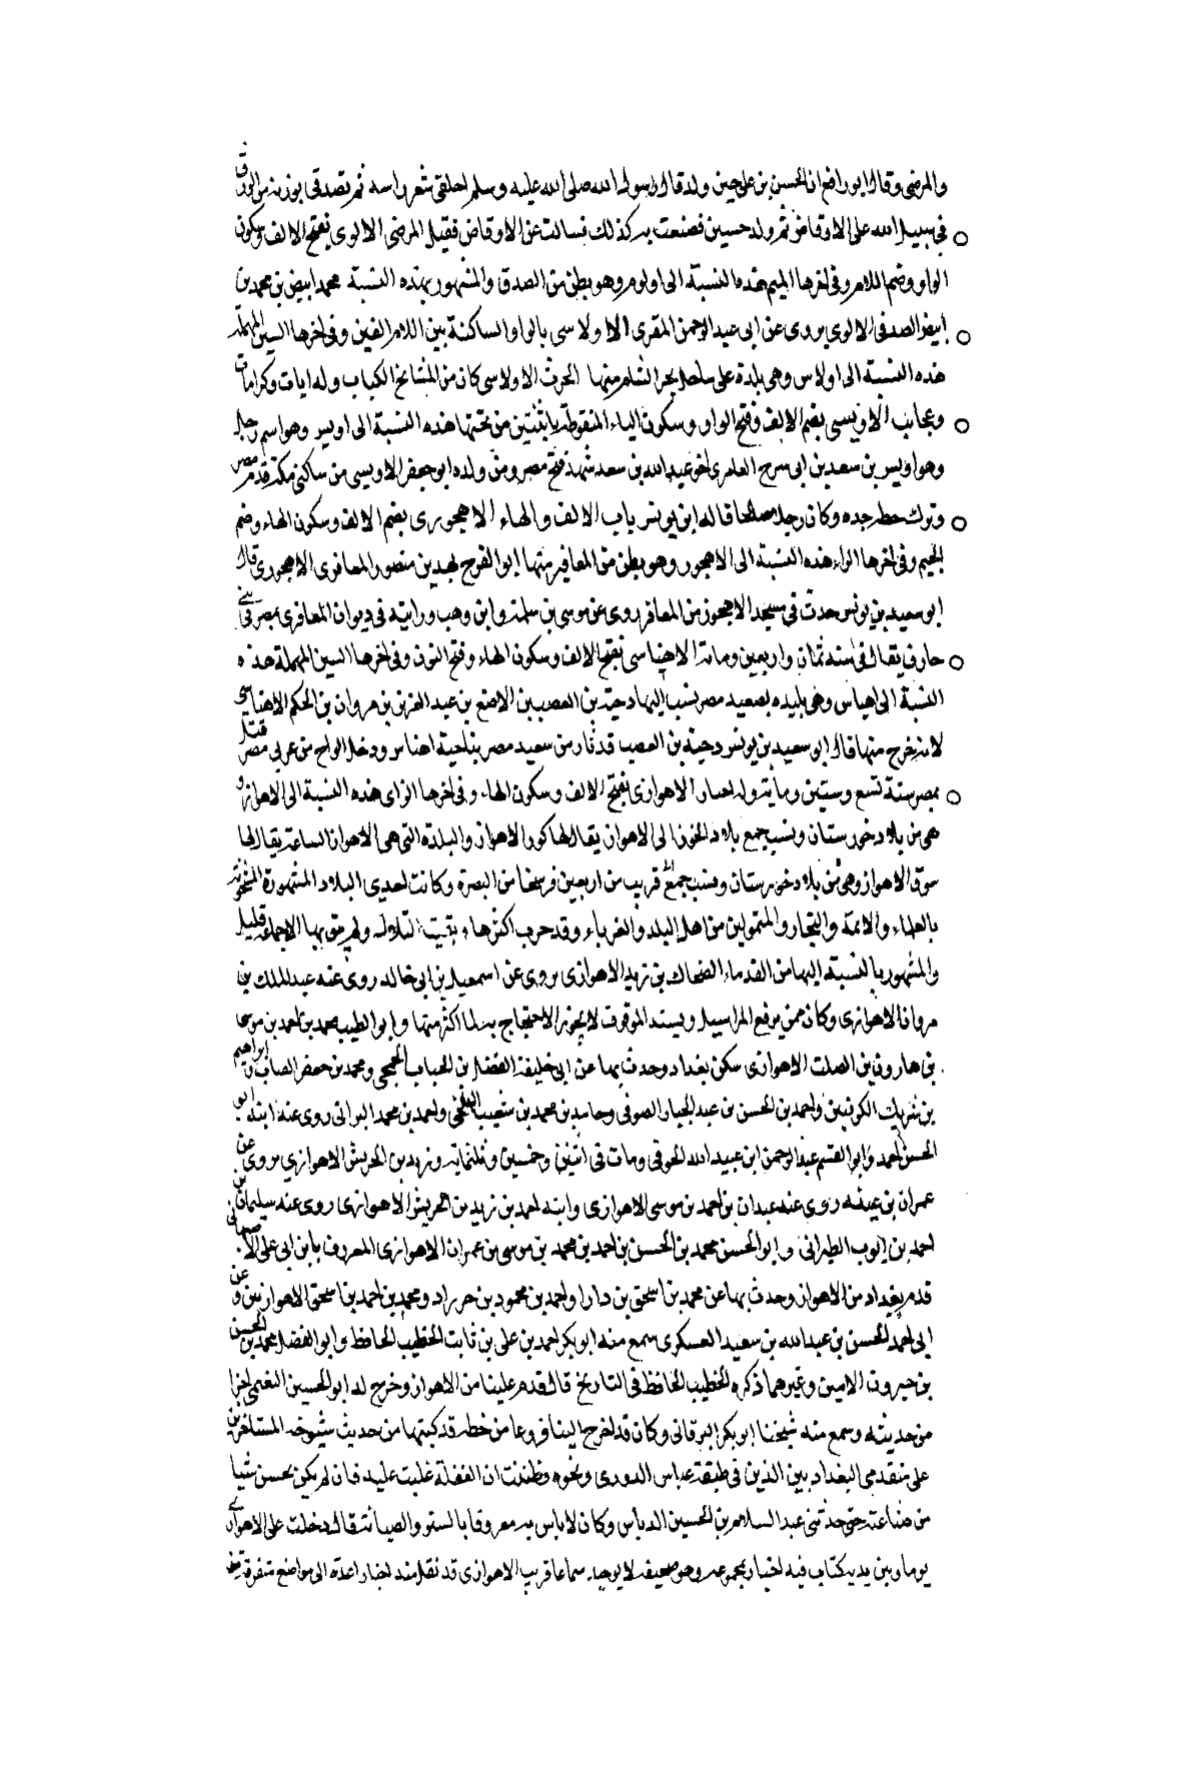 والمرضى وقال ابو رافع ان الحسن بن علي حين ولد قال رسول الله صلى الله عليه وسلم احلقي شعر راسه ثم تصدقي بوزنه من الورق
في سبيل الله على الاوفاض ثم ولد حسين فصنعت به كذلك فسالت عن الاوفاض فقيل المرضى الالوى بفتح الالف وسكون
الواو وضم اللام وفي اخرها الميم هذه النسبة الى اولوم وهو بطن من الصدف والمشهور بهذه النسبة محمد ابيض بن محمد بن
ابيض الصدفي الالوى يروى عن ابى عبد الرحمن المقرى الاولاسى بالواو الساكنة بين اللام الفين وفي اخرها السين المهملة
هذه النسبة الى اولاس وهي بلدة على ساحل بحر الشام منها الحرث الاولاسى كان من المشايخ الكبار وله ايات وكرامات
وعجائب الاويسى بضم الالف وفتح الواو وسكون الياء المنقوطة باثنتين من تحتها هذه النسبة الى اويس وهو اسم رجل
وهو اويس بن سعد بن ابى سرح العامرى اخو عبد الله بن سعد شهد فتح مصر ومن ولده ابو جعفر الاويسى من ساكنى مكة قدم مصر
وترك خطر جده وكان رجلا صالحا قاله ابن يونس باب الالف والهاء الاهجورى بضم الالف وسكون الهاء وضم
الجيم وفي اخرها الراء هذه النسبة الى الاهجور وهو بطن من المعافر منها ابو الفرج بن منصور المعافرى الاهجورى قال
ابو سعيد بن يونس حدث في مسجد الاهجور من المعافر روى عن موسى بن سلمة وابن وهب ورايته في ديوان المعافرى بمصر في بنى
يقال في سنة ثمان واربعين ومائة الاهناسى بفتح الالف وسكون الهاء وفتح النون وفي اخرها السين المهملة هذه
النسبة الى اهناس وهي بليده بصعيد مصر ينسب اليها دحية بن المعصب بن الاصبع بن عبد العزيز بن مروان بن الحكم الاهناسى
لانه خرج منها قال ابو سعيد بن يونس دحية بن المعصب قد ثار من سعيد مصر بناحية اهناس ودخل الواح من غربى مصر قتل
بمصر سنة تسع وستين ومايه وله اخبار الاهوازى بفتح الالف وسكون الهاء وفي اخرها الزاى هذه النسبة الى الاهواز و
هي من بلاد خورستان وينسب جمع بلاد الخوز الى الاهواز يقال لها كور الاهواز والبلدة التي هي الاهواز الساعة يقال لها
سوق الاهواز وهي من بلاد خورستان وينسب جمع قريب من اربعين فرسخا من البصرة وكانت احدى البلاد المشهورة المشحونة
بالعلماء والائمة والتجار والمتمولين من اهل البلد والغرباء وقد خرب اكثرها وبقيت التلال ولم يبق بها الا جماعة قليل
والمشهور بالنسبة اليها من القدماء الضحاك بن زيد الاهوازى يروى عن اسمعيل بن ابى خالد روى عنه عبد الملك بن
مروان الاهوازى وكان ممن يرفع المراسيل ويسند الموقوف لا يجوز الاحتجاج به لما اكثر منها وابو الطيب محمد بن احمد بن موسى
بن هارون بن الصلت الاهوازى سكن بغداد وحدث بها عن ابى خليفة الفضل بن الحباب الجمحى ومحمد بن جعفر وابراهيم
بن شريك الكوفيين واحمد بن الحسن بن عبد الجبار الصوفى وحامد بن محمد بن شعيب البلخى واحمد بن محمد البراثى روى عنه ابنه ابو
الحسن احمد وابو القسم عبد الرحمن ابن عبيد الله الحرفى ومات في اثنتين وخمسين وثلثمايه وزيد بن الحريش الاهوازى يروى عن
عمران بن عيينة روى عنه عبدان بن احمد بن موسى الاهوازى وابنه احمد بن زيد بن الحريش الاهوازى روى عنه سليمان بن
احمد بن ايوب الطبرانى وابو الحسن محمد بن الحسن بن احمد بن محمد بن موسى بن عمران الاهوازى المعروف بابن ابى على الاصبهانى
قدم بغداد من الاهواز وحدث بها عن محمد بن اسحق بن دارا واحمد بن محمود بن خرزاد ومحمد بن احمد بن اسحق الاهوازيين وعن
ابى احمد الحسن بن عبد الله بن سعيد العسكرى سمع منه ابو بكر احمد بن على بن ثابت الخطيب الحافظ وابو الفضل احمد بن الحسن
بن خيرون الامين وغيرهما ذكره الخطيب الحافظ في التاريخ قال قدم علينا من الاهواز وخرج له ابو الحسين النعيمى اجزا
من حديثه وسمع منه شيخنا ابو بكر البرقانى وكان قد اخرج الينا فروعا من خطه قد كتبها من حديث شيوخه المتاخرين
على متقدمى البغداديين الذين في طبقة عباس الدورى ونحوه وظننت ان الغفلة غلبت عليه فان لم يكن يحسن شيا
من صناعته حتى حدثنى عبد السلام بن الحسين الدباس وكان لا باس به معروفا بالستر والصيانة قال دخلت على الاهوازى
يوما وبين يديه كتاب فيه اخبار مجموعه وهو صحيفه لا يوجد سماعا قريب الاهوازى قد نقل منه اخبارا عدة الى مواضع متفرقة